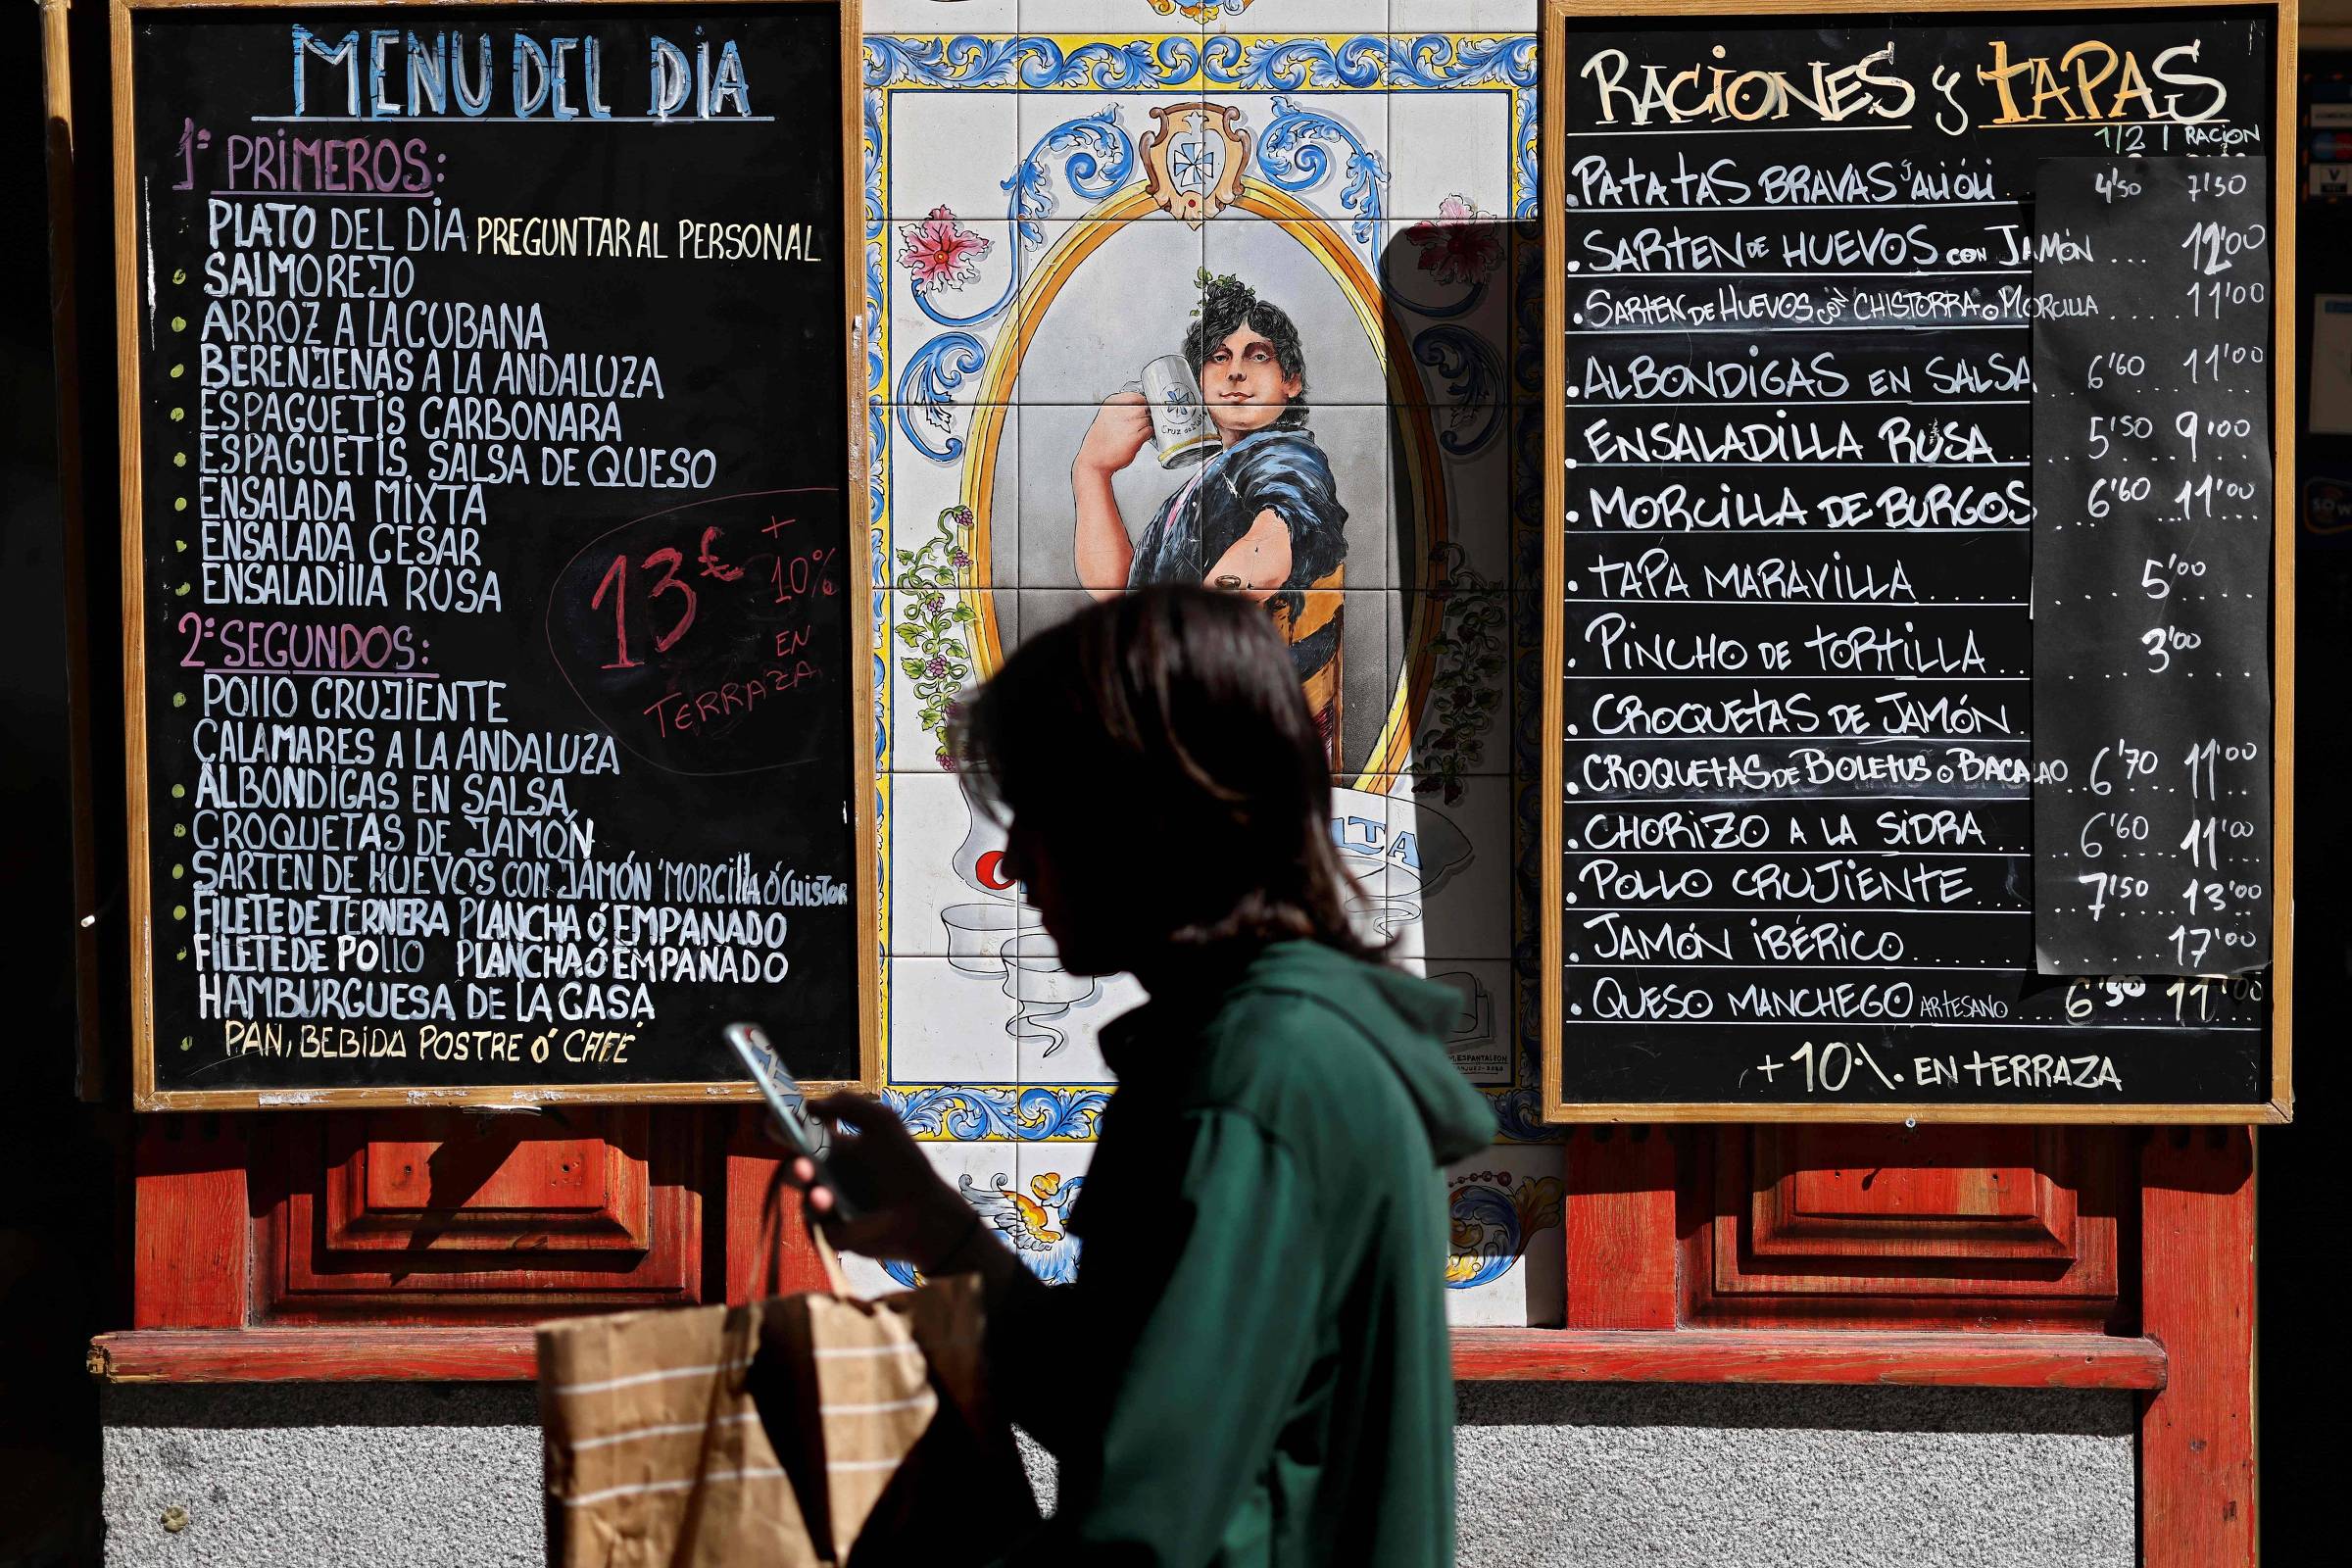 MENU DEL DÍA
1º PRIMEROS:
PLATO DEL DÍA PREGUNTAR AL PERSONAL
SALMOREJO
ARROZ A LA CUBANA
BERENJENAS A LA ANDALUZA
ESPAGUETIS CARBONARA
ESPAGUETIS SALSA DE QUESO
ENSALADA MIXTA
ENSALADA CESAR
ENSALADILLA RUSA
13€ + 10%
EN
TERRAZA
2º SEGUNDOS:
POLLO CRUJIENTE
CALAMARES A LA ANDALUZA
ALBONDIGAS EN SALSA
CROQUETAS DE JAMÓN
SARTEN DE HUEVOS CON JAMÓN 'MORCILLA Ó CHISTOR
FILETE DE TERNERA PLANCHA Ó EMPANADO
FILETE DE POLLO PLANCHA Ó EMPANADO
HAMBURGUESA DE LA CASA
PAN, BEBIDA POSTRE Ó CAFÉ
Cruz de
LTA
RACIONES y TAPAS
1/2 | RACION
.PATATAS BRAVAS Y ALIÓLI 4'50 7'50
.SARTEN DE HUEVOS CON JAMÓN ... 12'00
.SARTEN DE HUEVOS CON CHISTORRA O MORCILLA .... 11'00
.ALBONDIGAS EN SALSA 6'60 11'00
ENSALADILLA RUSA 5'50 9'00
.MORCILLA DE BURGOS 6'60 11'00
.TAPA MARAVILLA .... 5'00
.PINCHO DE TORTILLA .. 3'00
.CROQUETAS DE JAMÓN
.CROQUETAS DE BOLETUS O BACALAO .. 6'70 11'00
.CHORIZO A LA SIDRA .. 6'60 11'00
.POLLO CRUJIENTE ... 7'50 13'00
.JAMÓN IBÉRICO ..... 17'00
.QUESO MANCHEGO ARTESANO ... 6'50 11'00
+10% EN TERRAZA